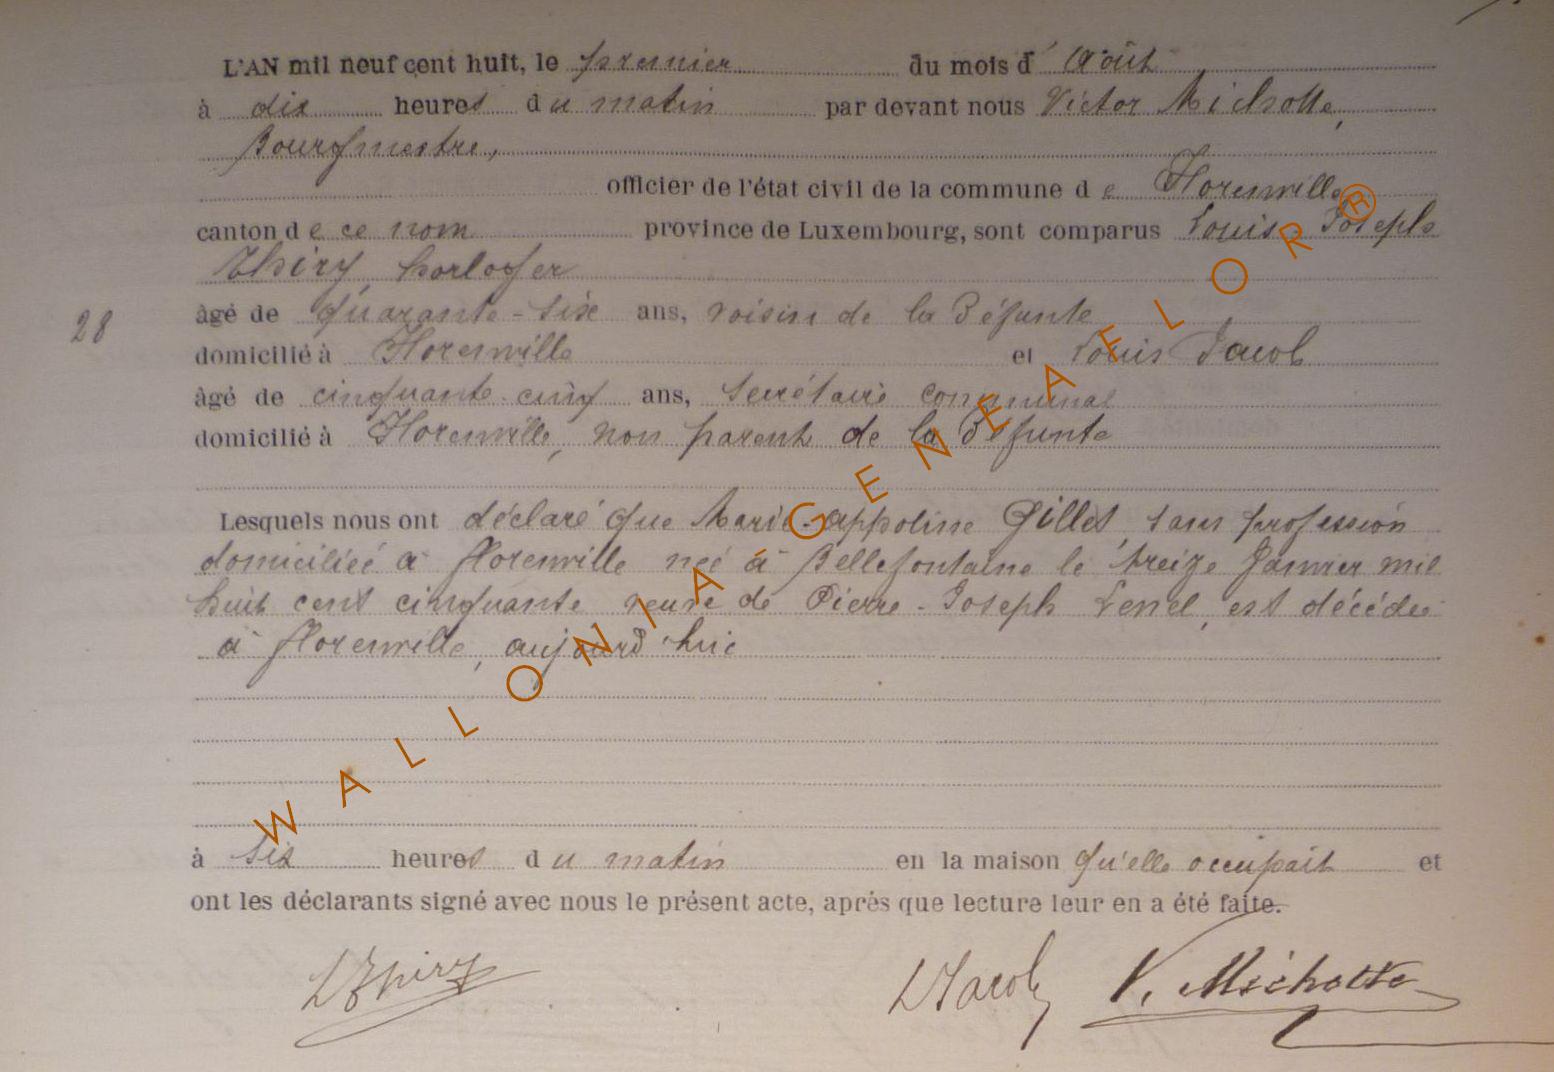 L'AN mil neuf cent huit, le premier du mois d' Août
à dix heures du matin par devant nous Victor Michotte,
Bourgmestre,
officier de l'état civil de la commune de Florenville
canton de ce nom province de Luxembourg, sont comparus Louis Joseph
Thiry, horloger
âgé de quarante-six ans, voisin de la défunte
28
domicilié à Florenville et Louis Jacob
âgé de cinquante-cinq ans, Secrétaire communal
domicilié à Florenville, non parent de la défunte
Lesquels nous ont déclaré que Marie-Appoline Gillet, sans profession
domiciliée à Florenville née à Bellefontaine le treize Janvier mil
huit cent cinquante veuve de Pierre-Joseph, est décédée
à Florenville, aujourd'hui
à six heures du matin en la maison qu'elle occupait et
ont les déclarants signé avec nous le présent acte, après que lecture leur en a été faite.
LThiry LJacob V. Michotte
WALLONIA-GENEAFLOR®